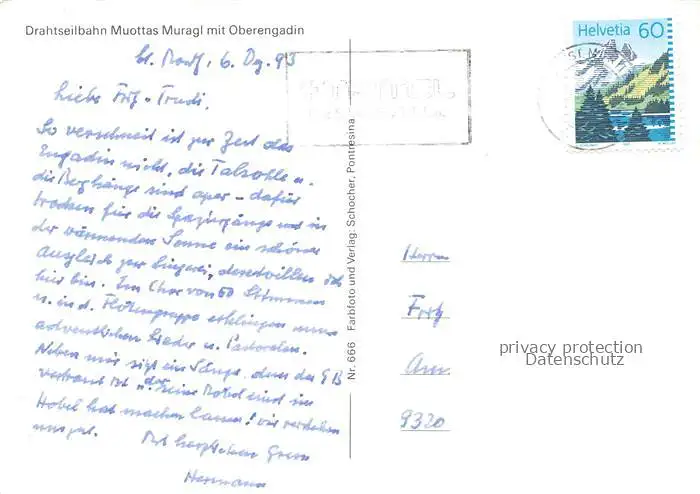 Drahtseilbahn Muottas Muragl mit Oberengadin
Helvetia 60
6. Dez. 93
Liebe Fritz - Trudi.
So verschneit ist zur Zeit das
Engadin nicht, die Talsohle u.
die Berghänge sind aper - dafür
trocken für die Spaziergänge und in
der wärmenden Sonne ein schöner
Ausgleich zur Singerei, deretwillen ich
hier bin. Im Chor von 60 Stimmen
u. in d. Flötengruppe erklingen nun
adventlichen Lieder u. Pastoralen.
Neben mir sitzt ein Sänger, dem das GB
vertraut ist
Hobel hat machen lassen! wir verstehen
uns gut.
Mit herzlichem Gruss
Hermann
Nr. 666 Farbfoto und Verlag: Schocher, Pontresina
Herrn
Fritz
Am.
9320
privacy protection
Datenschutz